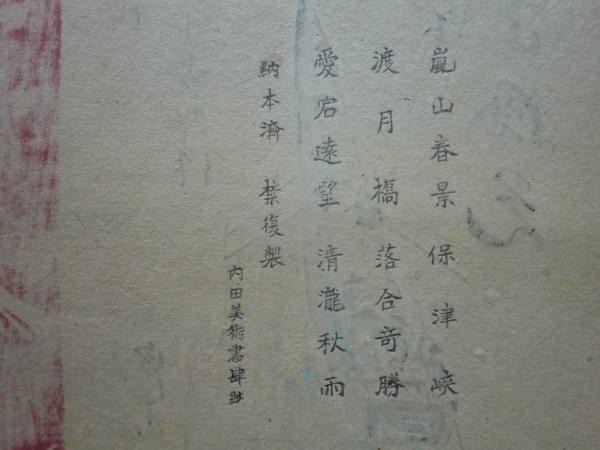 嵐山春景 保津峡
渡月橋 落合奇勝
愛宕遠望 清瀧秋雨
納本済 禁復製
内田美術書肆